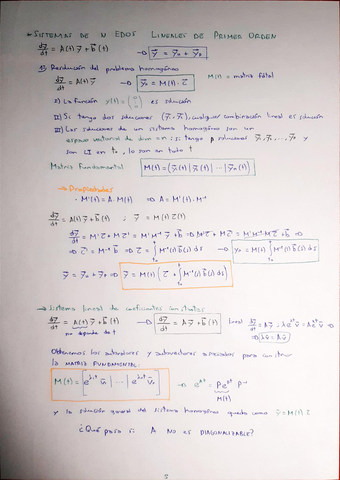 * SISTEMAS DE N EDOS LINEALES DE PRIMER ORDEN
dy⃗/dt = A(t) y⃗ + b⃗(t) → y⃗ = y⃗₀ + y⃗ₚ
1) Resolución del problema homogéneo
dy⃗/dt = A(t) y⃗ → y⃗₀ = M(t)·c⃗ M(t) = matriz
I) La función y(t) = es solución
II) Si tengo dos soluciones (y⃗₁, y⃗₂), cualquier combinación lineal es solución
III) Las soluciones de un sistema homogéneo son un
espacio vectorial de dim = n; si tengo n soluciones y⃗₁, y⃗₂, ..., y⃗ₙ y
son LI en t₀, lo son en todo t
Matriz Fundamental M(t) = (y⃗₁(t) | y⃗₂(t) | ... | y⃗ₙ(t))
→ Propiedades
· M'(t) = A·M(t) ⇒ A = M'(t)·M⁻¹
dy⃗/dt = A(t) y⃗ + b⃗(t) ; y⃗ = M(t) c⃗(t)
dy⃗/dt = M'c⃗ + Mc⃗' = M'M⁻¹y⃗ + b⃗ ⇒ M'c⃗ + Mc⃗' = M'M⁻¹Mc⃗ + b⃗ ⇒
⇒ c⃗' = M⁻¹b⃗ ⇒ c⃗ = ∫ M⁻¹(s) b⃗(s) ds → yₚ = M(t) ∫ M⁻¹(s) b⃗(s) ds
y⃗ = y⃗₀ + y⃗ₚ ⇒ y⃗ = M(t) (c⃗ + ∫ M⁻¹(s) b⃗(s) ds)
→ Sistema lineal de coeficientes constantes
dy⃗/dt = A(t) y⃗ + b⃗(t) → dy⃗/dt = A y⃗ + b⃗(t)
no depende de t
⇒ λv⃗ = Av⃗
Obtenemos los autovalores y autovectores asociados para construir
la MATRIZ FUNDAMENTAL
M(t) = [e^(λ₁t) v⃗₁ | ... | e^(λₙt) v⃗ₙ] → e^(At) = P e^(Dt) P⁻¹
M(t)
y la solución general del sistema homogéneo queda como y⃗ = M(t) c⃗
¿Qué pasa si A NO ES DIAGONALIZABLE?